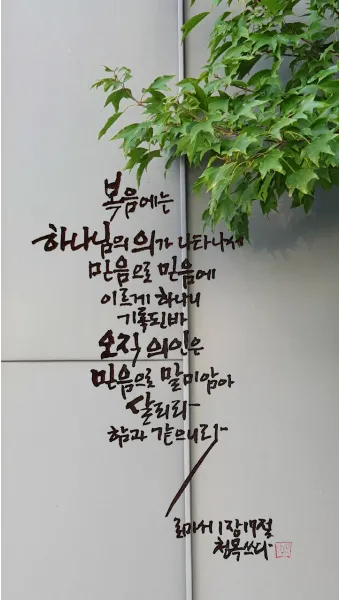 복음에는
하나님의 의가 나타나서
믿음으로 믿음에
이르게 하나니
기록된바
오직 의인은
믿음으로 말미암아
살리라
함과 같으니라
로마서 1장 17절
청목쓰다